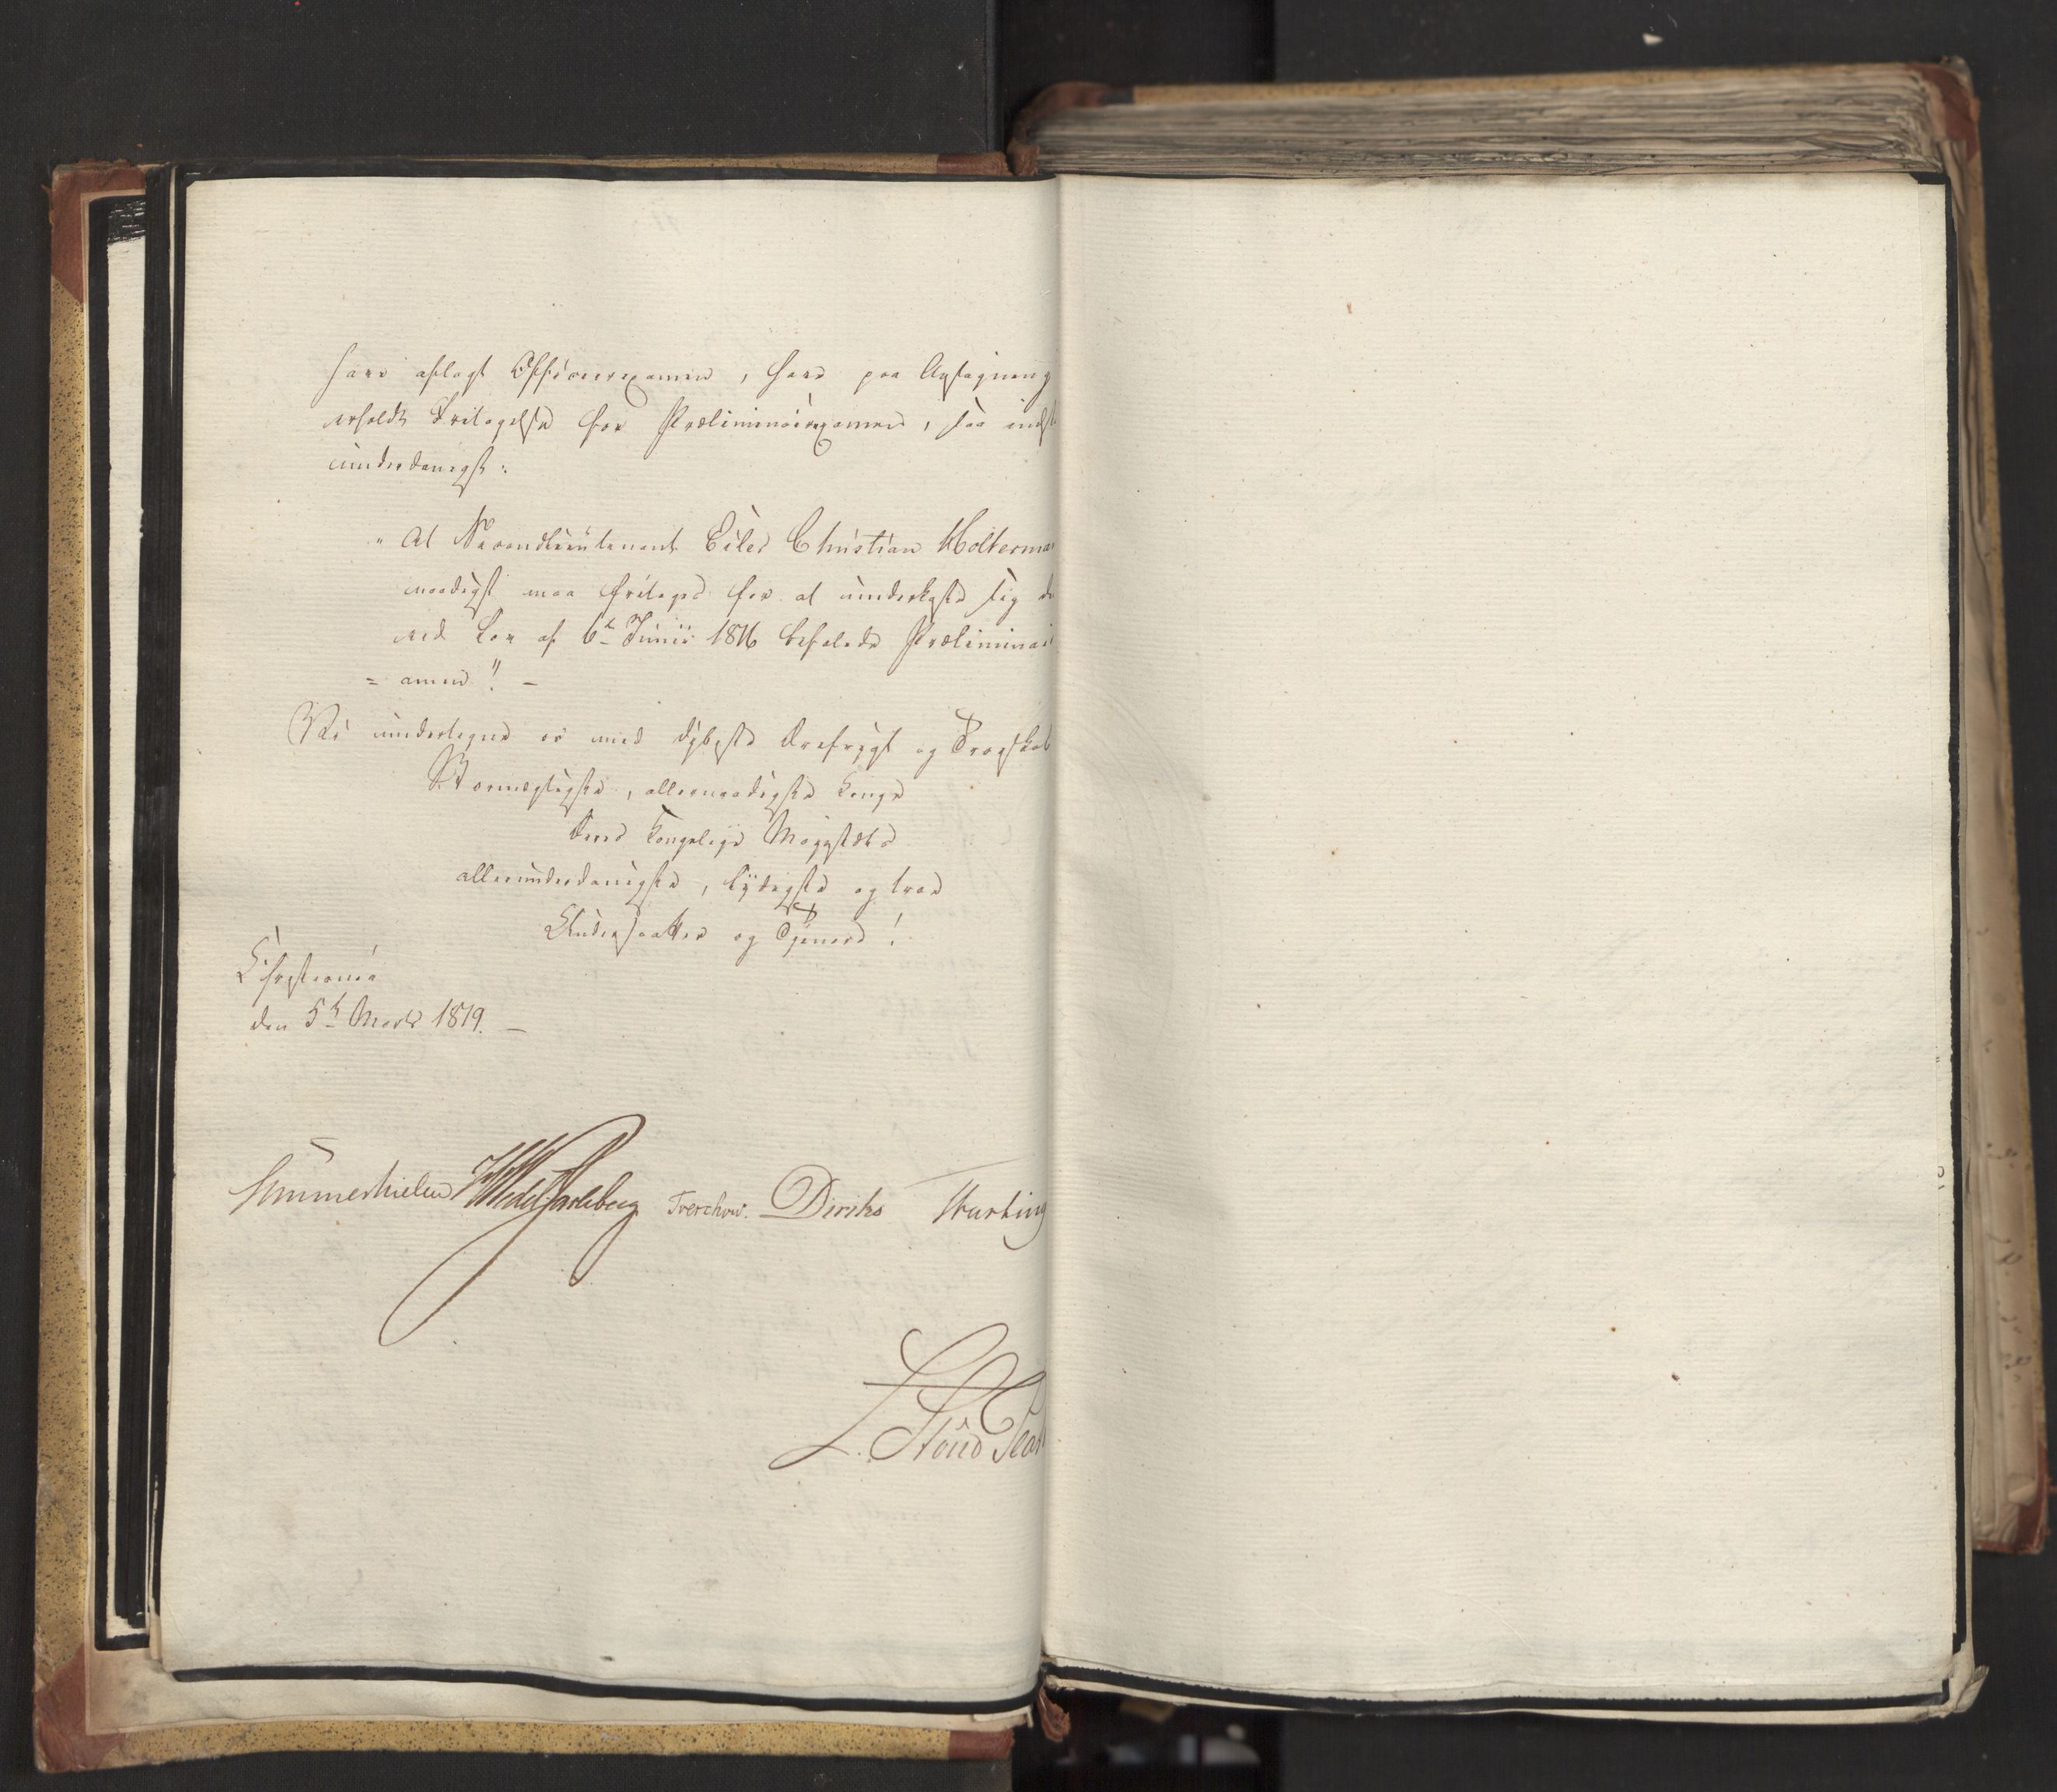 have aflagt Officeerexamen, have paa Ansøgning
erholdt Fritagelse for Præliminairexamen, saa indst
underdanigst:
" At Secondlieutenant Eiler Christian Holterma
naadigst maa fritages for at underkaste sig de
ved Lov af 6te Junii 1816 befalede Præliminai
= amen"! -
Vi undertegne os med dybeste Ærefrygt og Troskab
Stormægtigste, allernaadigste Konge
Deres Kongelige Majestæts
allerunderdanigste, lydigste og troe
Undersaatter og Tjenere!
Christiania
den 5te Marts 1819. -
Sommerhielm HWedelJarlsberg Treschow. Diriks Hasting
L. Stoud Plat